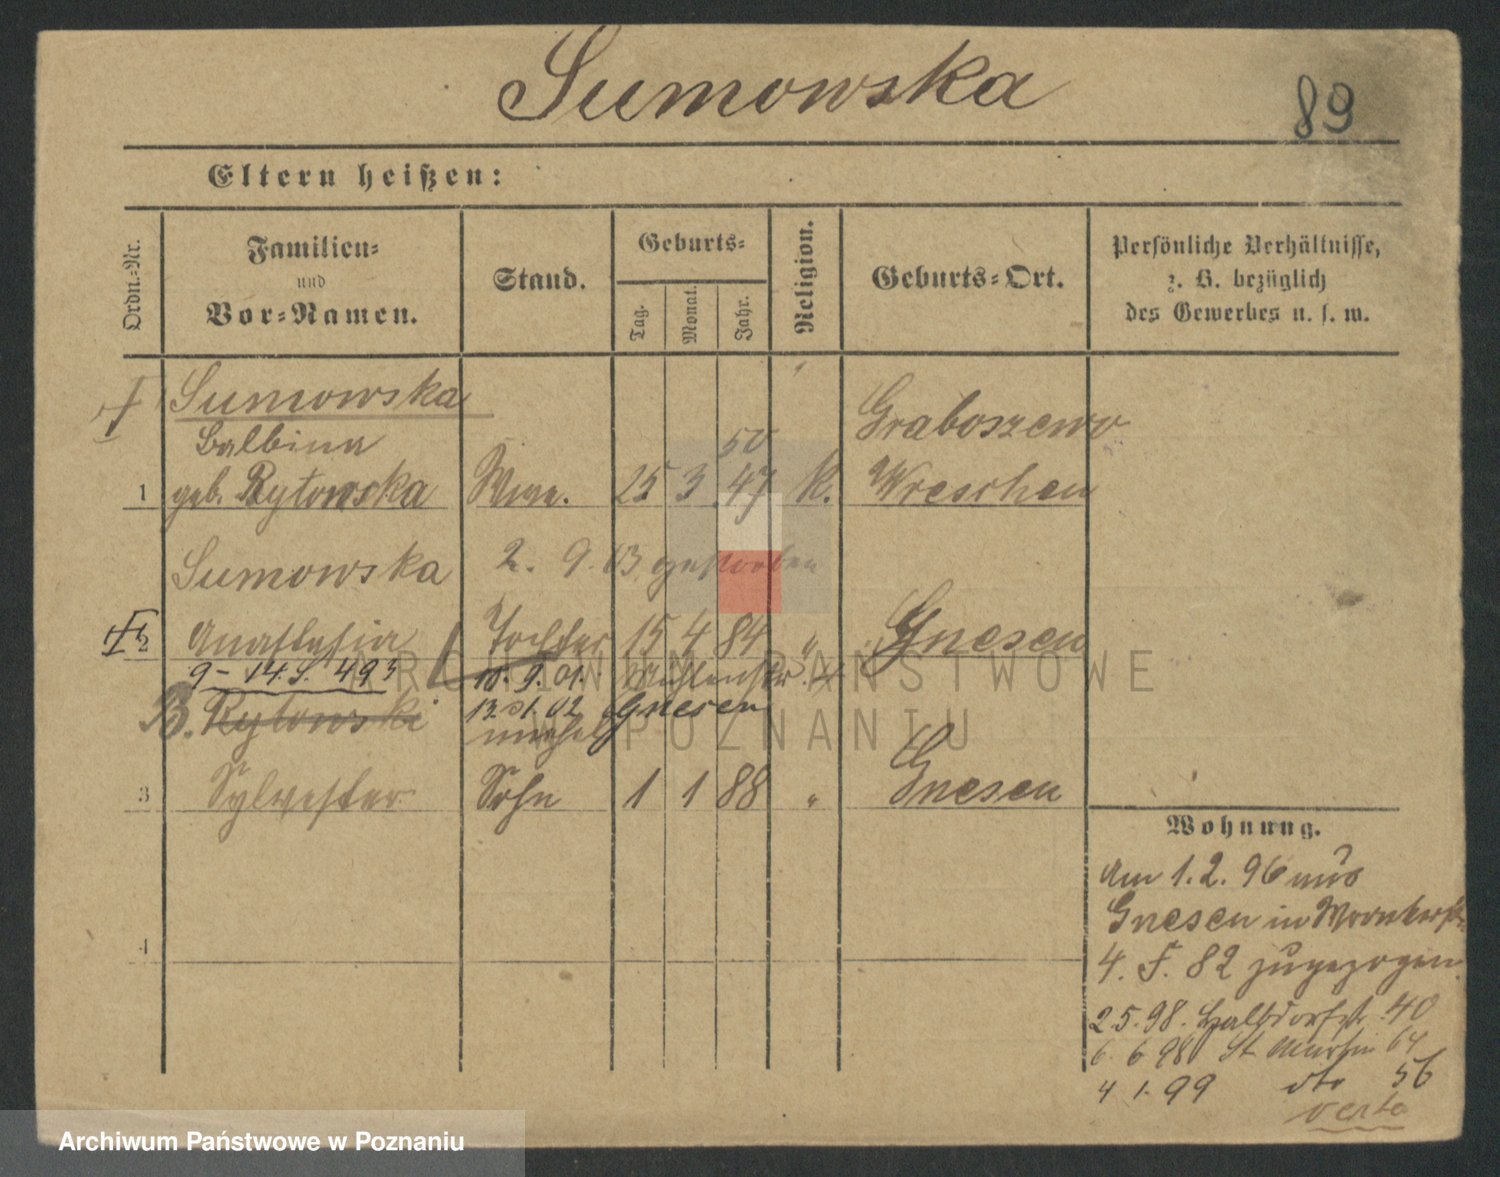 Sumowska
89
Eltern heißen:
Ordn.-Nr.
Familien-
und
Vor-Namen.
Stand.
Geburts-
Tag.
Monat.
Jahr.
Religion.
Geburts-Ort.
Persönliche Verhältnisse,
z. B. bezüglich
des Gewerbes u. s. w.
Sumowska
Balbina
50
Graboszewo
1 geb. Rytowska Wwe. 25 3 47 K. Wreschen
Sumowska 2. 9. 03 gestorben
2 Anastasia Tochter 15 4 84 " Gnesen
9 - 14. S. 493 10. 9. 01.
B. Rytowski 13. 1. 02 Gnesen
3 Sylvester Sohn 1 1 88 " Gnesen
4
Wohnung.
Am 1. 2. 96 aus
Gnesen in
4. F. 82 zugezogen.
2.5.98. Halbdorfstr. 40
6. 6 98 St Martin 64
4 1. 99 dto 56
verte
ARCHIWUM PAŃSTWOWE
W POZNANIU
Archiwum Państwowe w Poznaniu